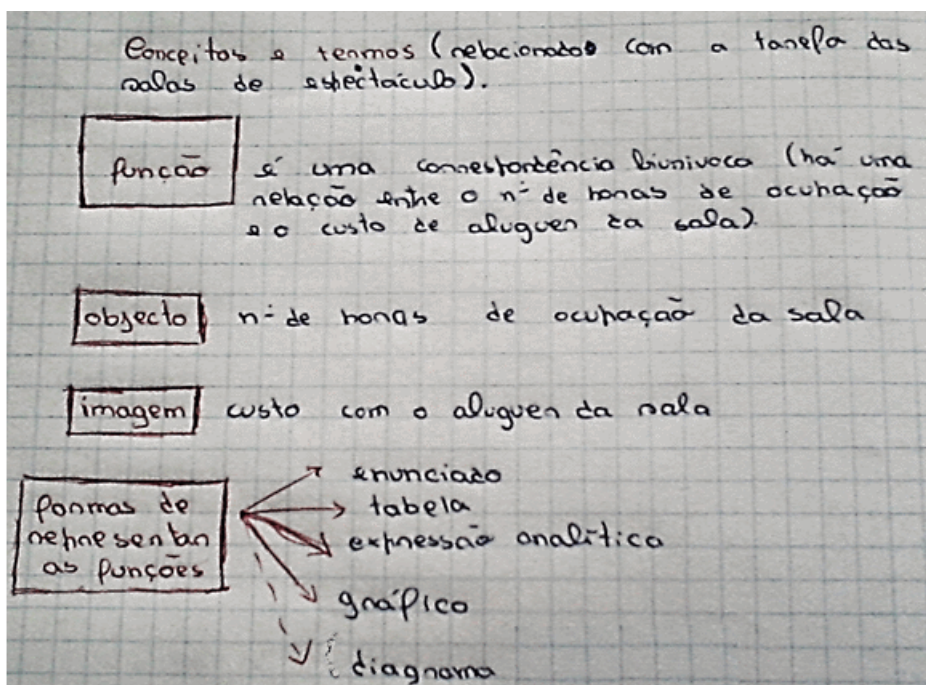 Conceitos e termos (relacionados com a tarefa das
salas de espectáculo).
função
é uma correspondência biunivoca (há uma
relação entre o nº de horas de ocupação
e o custo de aluguer da sala).
objecto nº de horas de ocupação da sala
imagem custo com o aluguer da sala
formas de
representar
as funções
enunciado
tabela
expressão analítica
gráfico
diagrama